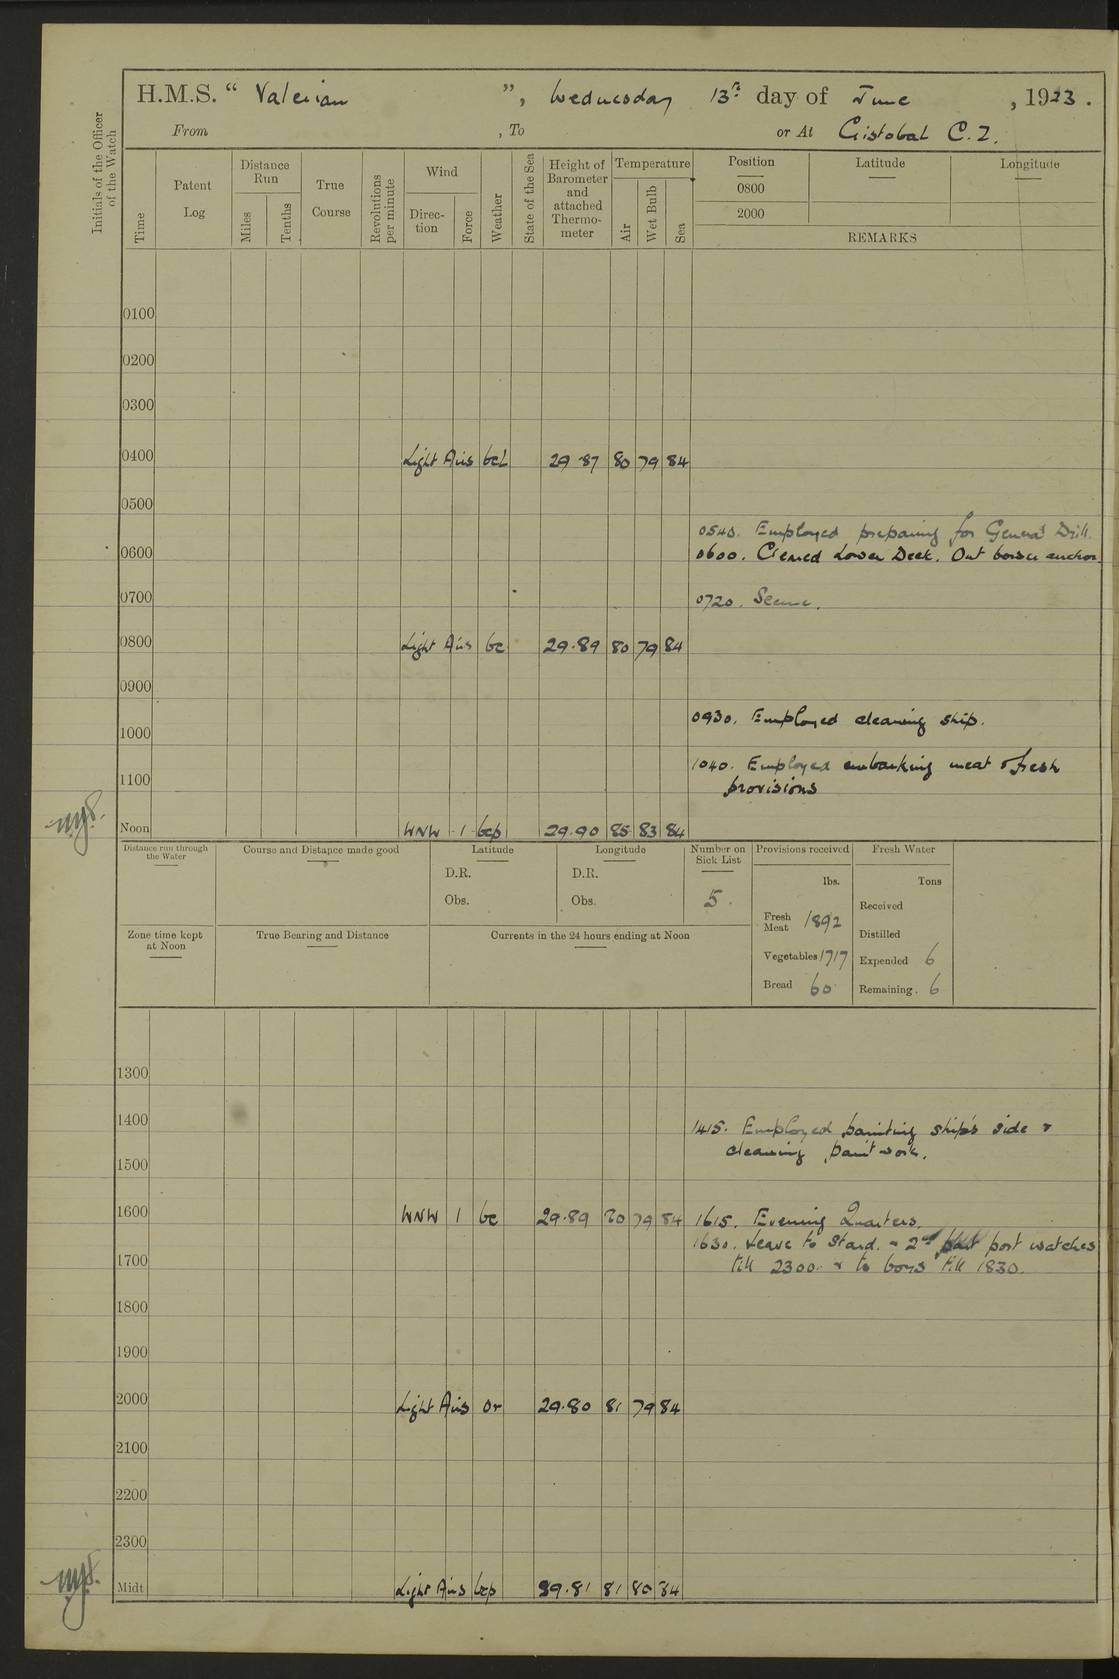 H.M.S. “ Valerian ”, Wednesday 13th day of June , 1923.
From , To or At Cristobal C.Z.
Initials of the Officer of the Watch
Time
Patent Log
Distance Run
Miles
Tenths
True Course
Revolutions per minute
Wind
Direc-tion
Force
Weather
State of the Sea
Height of Barometer and attached Thermo-meter
Temperature
Air
Wet Bulb
Sea
Position Latitude Longitude
0800
2000
REMARKS
0100
0200
0300
0400 Light Airs bcL 29.87 80 79 84
0500
0540. Employed preparing for General Drill.
0600 0600. Cleared Lower Deck. Out bower anchor.
0700 0720. Secure.
0800 Light Airs bc 29.89 80 79 84
0900
0930. Employed cleaning ship.
1000
1040. Employed embarking meat & fresh
1100 provisions
Noon WNW 1 bcp 29.90 85 83 84
Distance run through the Water
Course and Distance made good
Latitude
D.R.
Obs.
Longitude
D.R.
Obs.
Number on Sick List
5.
Provisions received
lbs.
Fresh Meat 1892
Vegetables 1717
Bread 60
Fresh Water
Tons
Received
Distilled
Expended 6
Remaining. 6
Zone time kept at Noon
True Bearing and Distance
Currents in the 24 hours ending at Noon
1300
1400 1415. Employed painting ship's side &
1500 cleaning paintwork.
1600 WNW 1 bc 29.89 80 79 84 1615. Evening Quarters.
1630. Leave to Starb. & 2nd port watches
1700 till 2300 & to boys till 1830.
1800
1900
2000 Light Airs or 29.80 81 79 84
2100
2200
2300
Midt Light Airs bcp 29.81 81 80 84